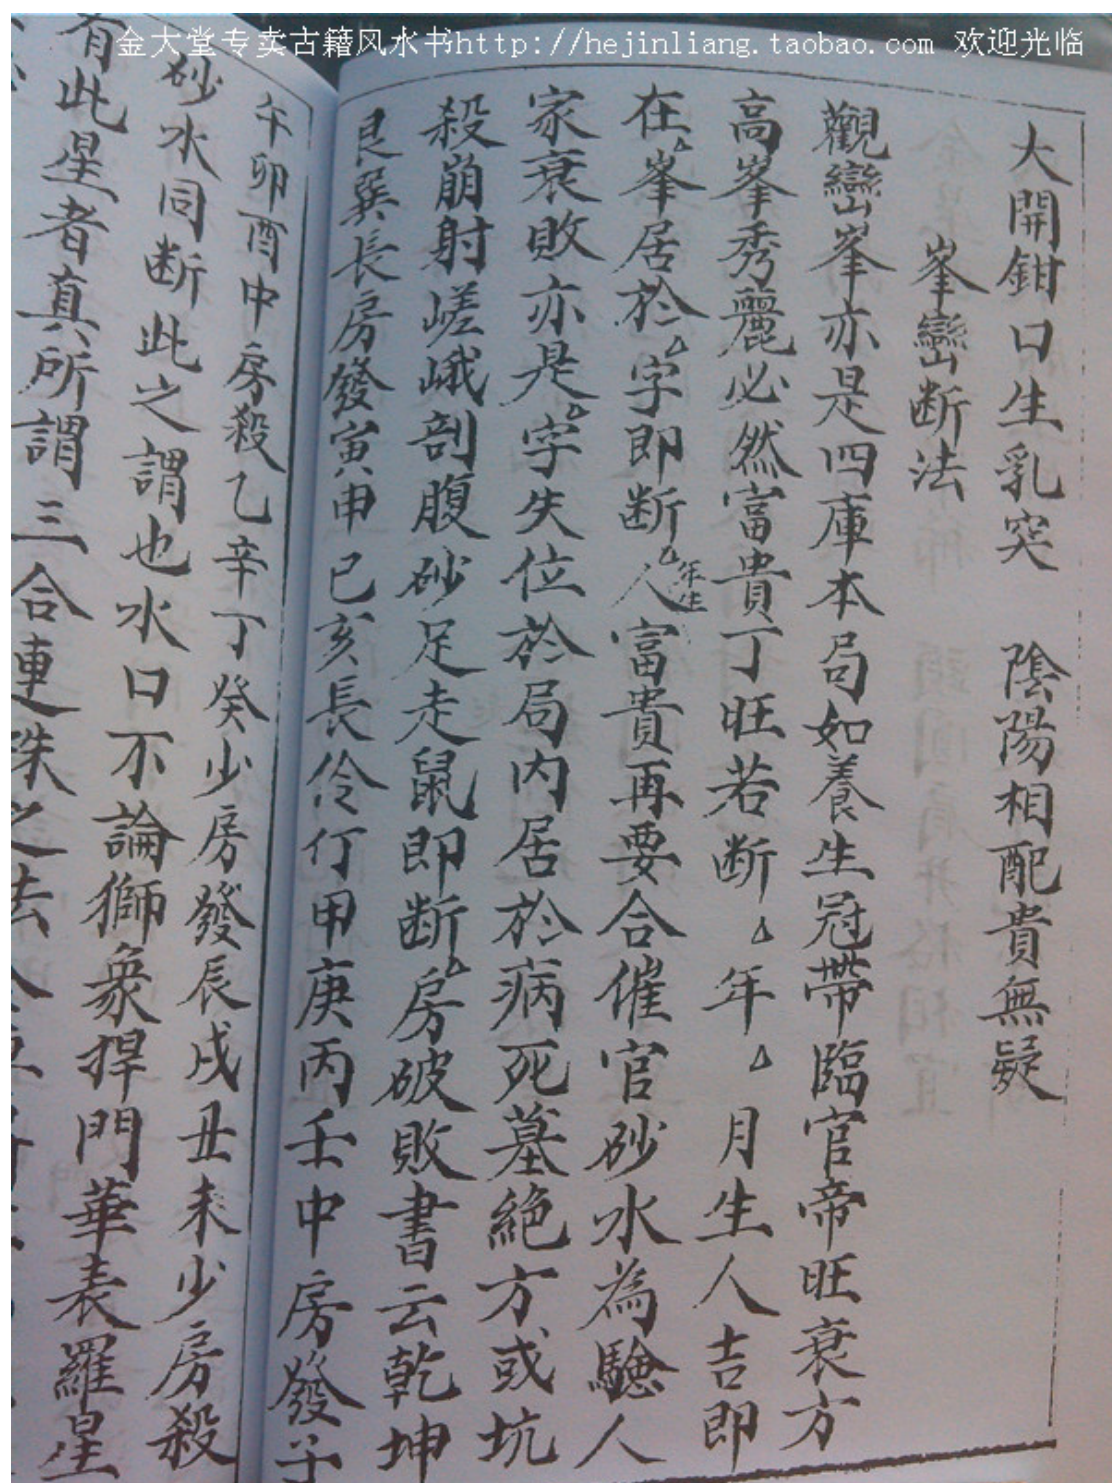 金大堂专卖古籍风水书http://hejinliang.taobao.com 欢迎光临
大開鉗口生乳突 陰陽相配貴無疑
峯巒断法
觀巒峯亦是四庫本局如養生冠帶臨官帝旺衰方
高峯秀麗必然富貴丁旺若断△年△月生人吉即
在△峯居於△字即断△年生人富貴再要合催官砂水為驗人
家衰敗亦是△字失位於局内居於病死墓絶方或坑
殺崩射嵯峨剖腹砂足走鼠即断△房破敗書云乾坤
艮巽長房發寅申巳亥長伶仃甲庚丙壬中房發子
午卯酉中房殺乙辛丁癸少房發辰戌丑未少房殺
砂水同断此之謂也水口不論獅象捍門華表羅星
有此星者真所謂三合連珠之法